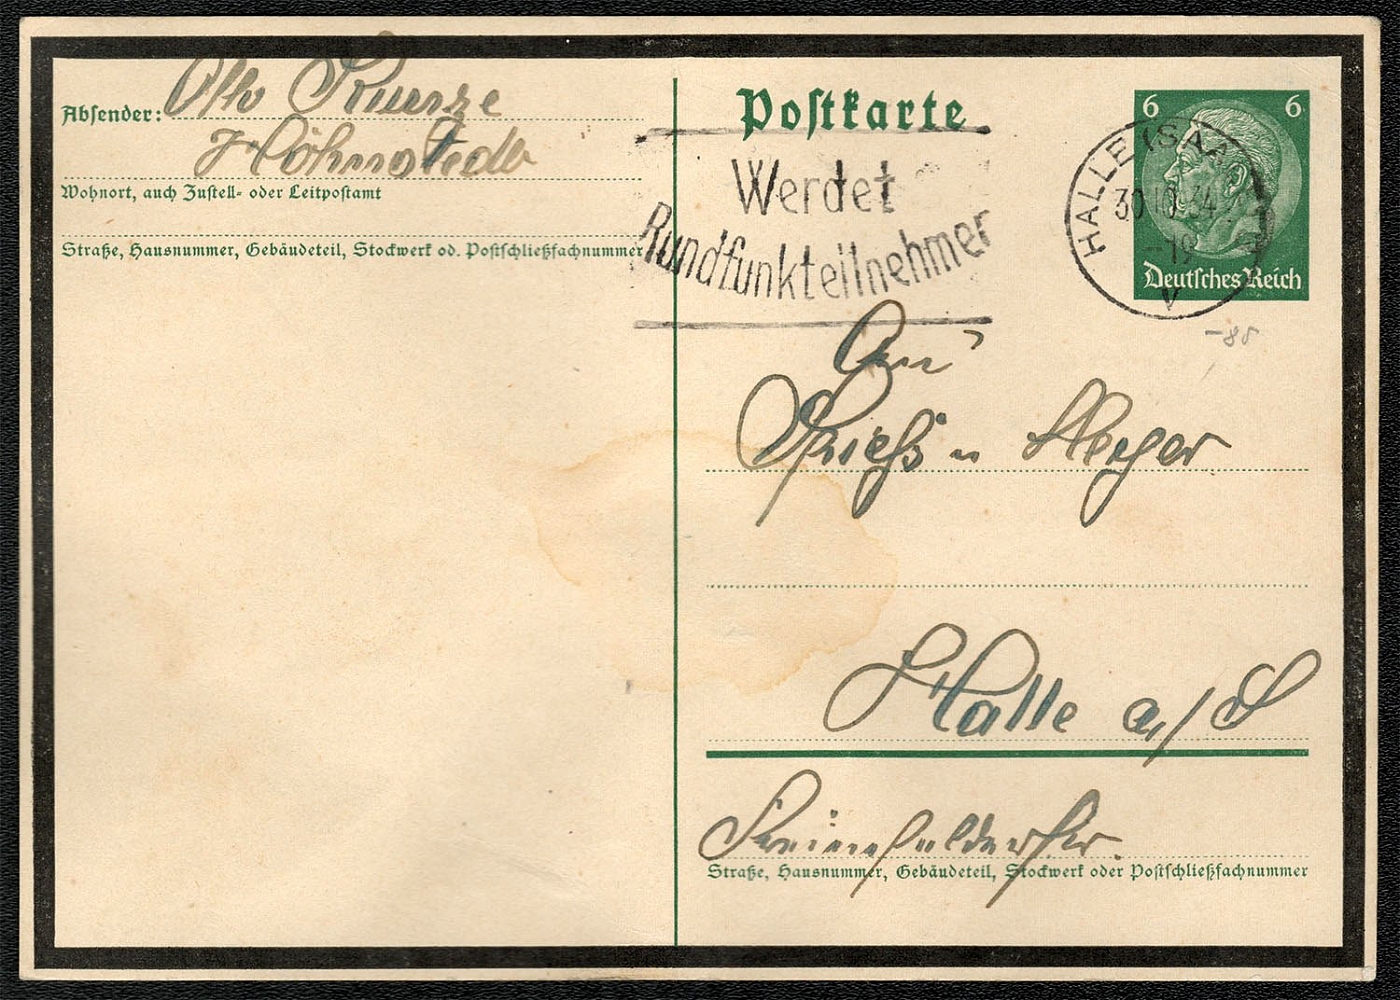 Absender: Otto Kunze
Höhnstedt
Wohnort, auch Zustell- oder Leitpostamt
Straße, Hausnummer, Gebäudeteil, Stockwerk od. Postschließfachnummer
Postkarte
Werdet
Rundfunkteilnehmer
6 6
HALLE (SAA
30.10.34
-19
V
Deutsches Reich
-85
An
u
Halle a/S
Straße, Hausnummer, Gebäudeteil, Stockwerk oder Postschließfachnummer